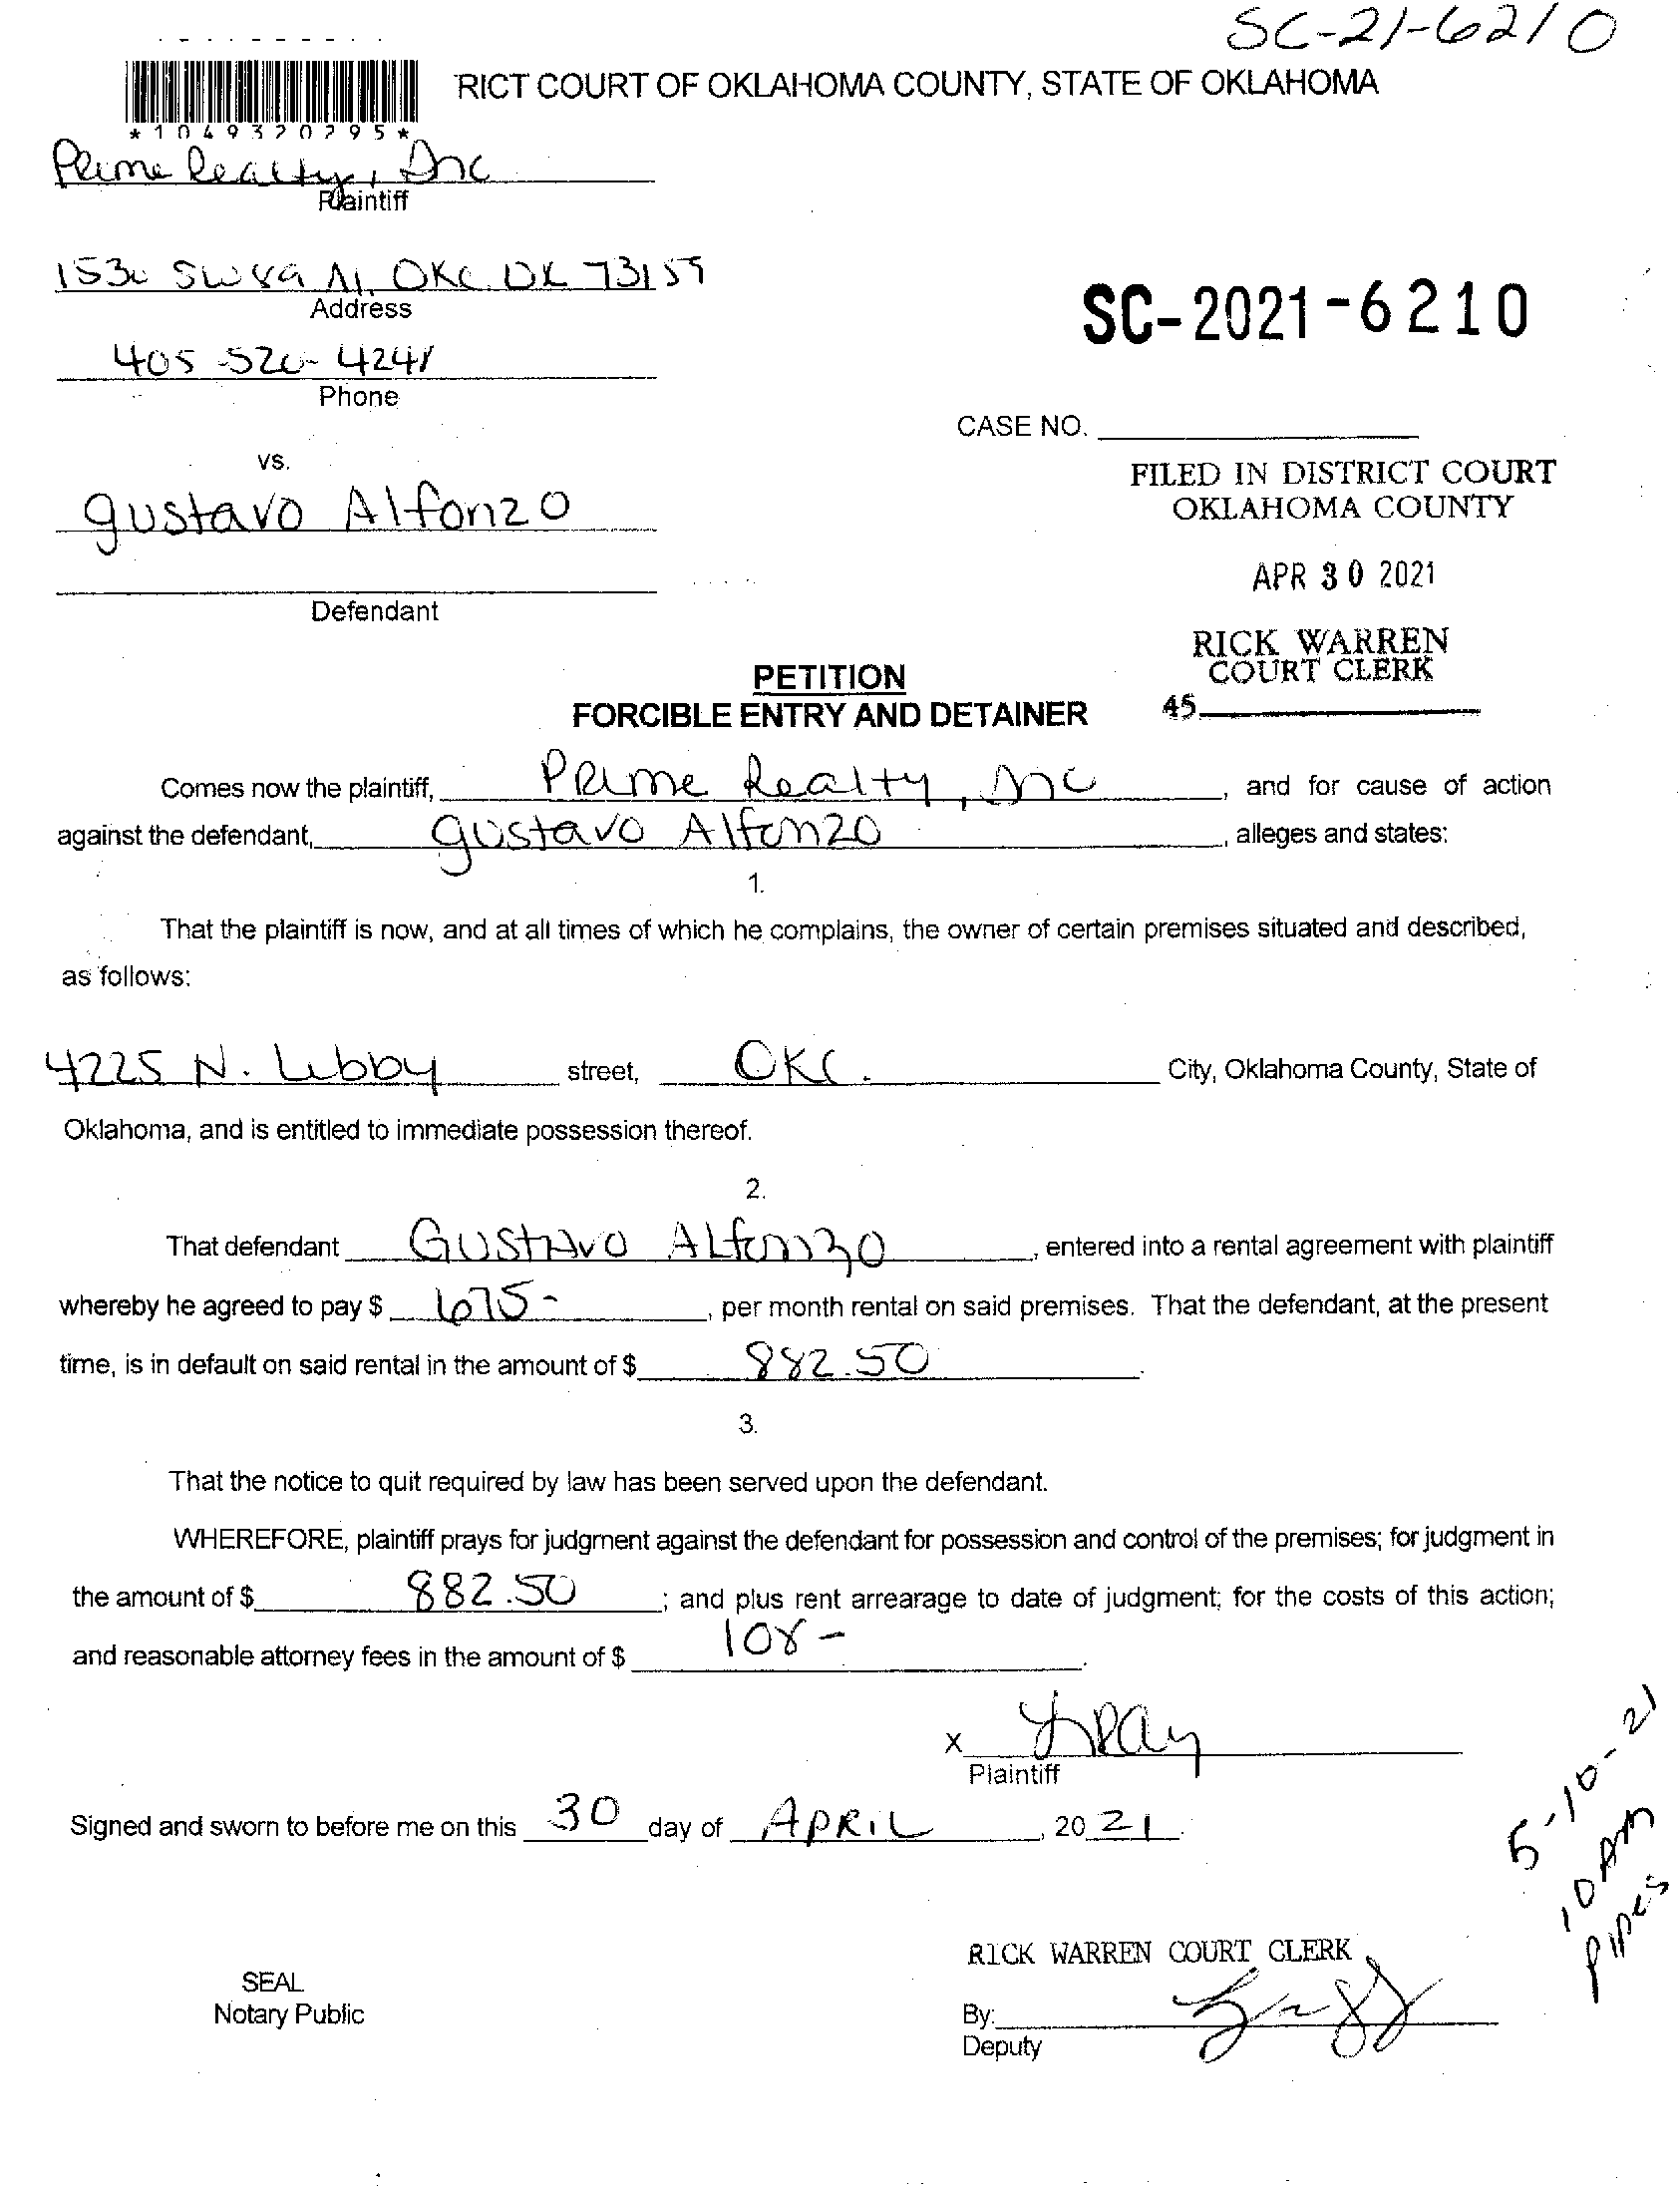 SC-21-6210
RICT COURT OF OKLAHOMA COUNTY, STATE OF OKLAHOMA
*1049320295*
Prime Realty, Inc
Plaintiff
SW 89 OKC OK 73159
Address
405 4241
Phone
SC-2021-6210
CASE NO.
vs.
gustavo Alfonzo
Defendant
FILED IN DISTRICT COURT
OKLAHOMA COUNTY
APR 30 2021
RICK WARREN
COURT CLERK
45
PETITION
FORCIBLE ENTRY AND DETAINER
Comes now the plaintiff, Prime Realty, Inc, and for cause of action
against the defendant, gustavo Alfonzo, alleges and states:
1.
That the plaintiff is now, and at all times of which he complains, the owner of certain premises situated and described,
as follows:
4225 N. Libby street, OKC. City, Oklahoma County, State of
Oklahoma, and is entitled to immediate possession thereof.
2.
That defendant Gustavo Alfonzo, entered into a rental agreement with plaintiff
whereby he agreed to pay $ 675-, per month rental on said premises. That the defendant, at the present
time, is in default on said rental in the amount of $ 882.50.
3.
That the notice to quit required by law has been served upon the defendant.
WHEREFORE, plaintiff prays for judgment against the defendant for possession and control of the premises; for judgment in
the amount of $ 882.50; and plus rent arrearage to date of judgment; for the costs of this action;
and reasonable attorney fees in the amount of $ 108-.
X
Plaintiff
Signed and sworn to before me on this 30 day of APRIL, 20 21.
5-10-21
10 AM
Pipes
SEAL
Notary Public
RICK WARREN COURT CLERK
By:
Deputy